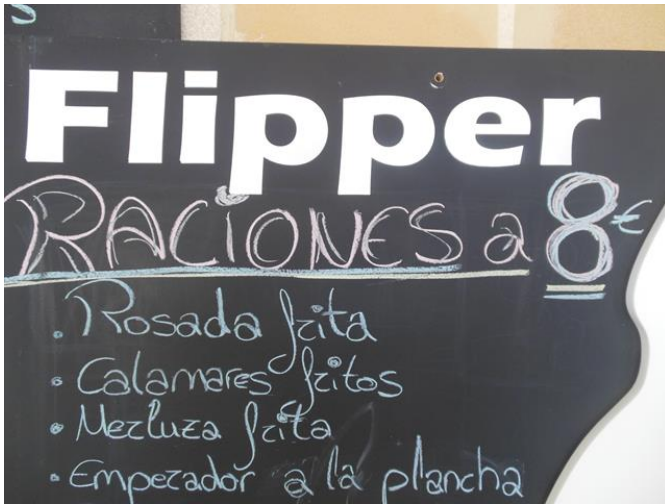 S
Flipper
RACiONES a 8€
. Rosada frita
• Calamares fritos
• Merluza frita
• Emperador a la plancha